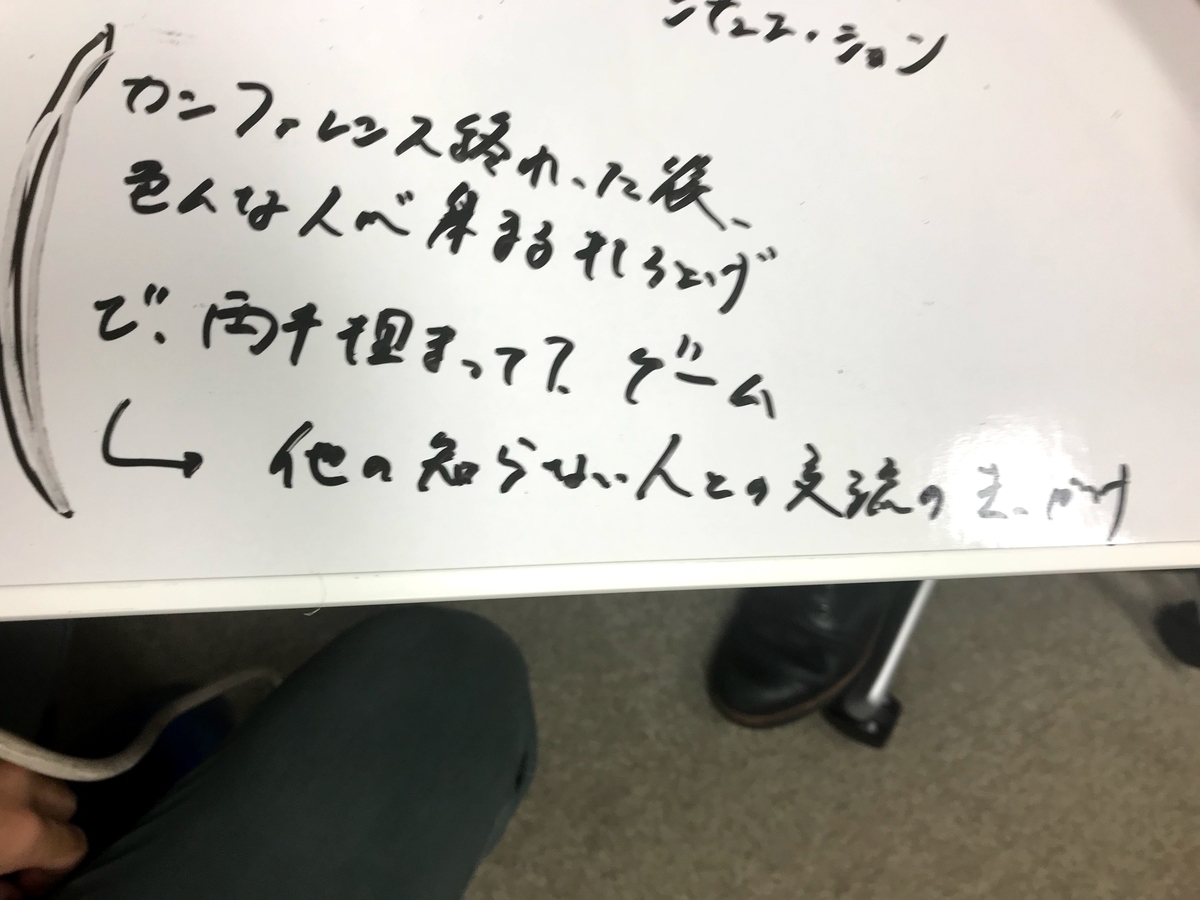 シチュエーション
カンファレンス終わった後、
色んな人が集まる打ち上げ
で、両手埋まってて、ゲーム
↳ 他の知らない人との交流のきっかけ